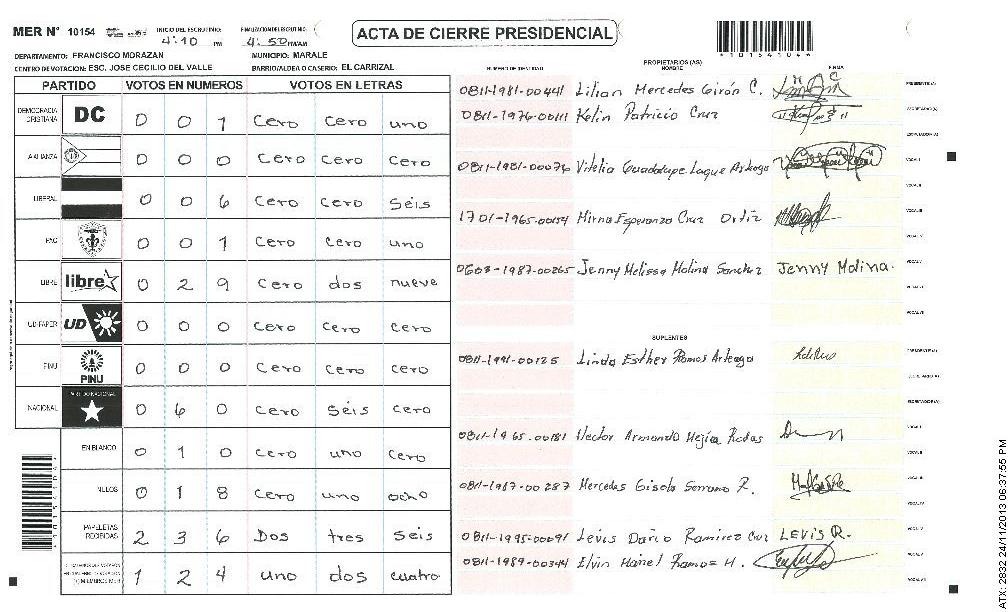 MER N° 10154
INICIO DEL ESCRUTINIO:
4:10 PM
FINALIZACION DEL ESCRUTINIO:
4:50 PM/AM
ACTA DE CIERRE PRESIDENCIAL
DEPARTAMENTO: FRANCISCO MORAZAN
MUNICIPIO: MARALE
CENTRO DE VOTACION: ESC. JOSE CECILIO DEL VALLE
BARRIO/ALDEA O CASERIO: EL CARRIZAL
PARTIDO VOTOS EN NUMEROS VOTOS EN LETRAS
DEMOCRACIA CRISTIANA DC 0 0 1 Cero Cero uno
ALIANZA 0 0 0 Cero Cero Cero
LIBERAL 0 0 6 Cero Cero Séis
PAC 0 0 1 Cero Cero uno
LIBRE libre 0 2 9 Cero dos nueve
UD-FAPER UD 0 0 0 Cero Cero Cero
PINU PINU 0 0 0 Cero Cero Cero
NACIONAL PARTIDO NACIONAL 0 6 0 Cero Séis Cero
EN BLANCO 0 1 0 Cero uno Cero
NULOS 0 1 8 Cero uno ocho
PAPELETAS RECIBIDAS 2 3 6 Dos tres Séis
1 2 4 uno dos cuatro
NUMERO DE IDENTIDAD
PROPIETARIOS (AS)
NOMBRE
FIRMA
0811-1981-00441 Lilian Mercedes Girón C. PRESIDENTE(A)
0811-1976-00111 Kelin Patricio Cruz SECRETARIO(A)
ESCRUTADOR(A)
0811-1981-00076 Vitelia Guadalupe Laque Arteaga VOCAL I
VOCAL II
1701-1965-00154 Mirna Esperanza Cruz Ortiz VOCAL III
VOCAL IV
0603-1987-00265 Jenny Melissa Molina Sanchez Jenny Molina. VOCAL V
VOCAL VI
VOCAL VII
SUPLENTES
0811-1991-00125 Linda Esther Ramos Arteaga PRESIDENTE(A)
SECRETARIO(A)
ESCRUTADOR(A)
0811-1965-00181 Hector Armando Mejia Rodas VOCAL I
VOCAL II
0811-1987-00287 Mercedes Gisela Serrano R. VOCAL III
VOCAL IV
0811-1995-00091 Levis Dario Ramirez Cruz LEVIS R. VOCAL V
0811-1989-00344 Elvin Hanel Ramos H. VOCAL VI
VOCAL VII
ATX: 2832 24/11/2013 06:37:55 PM